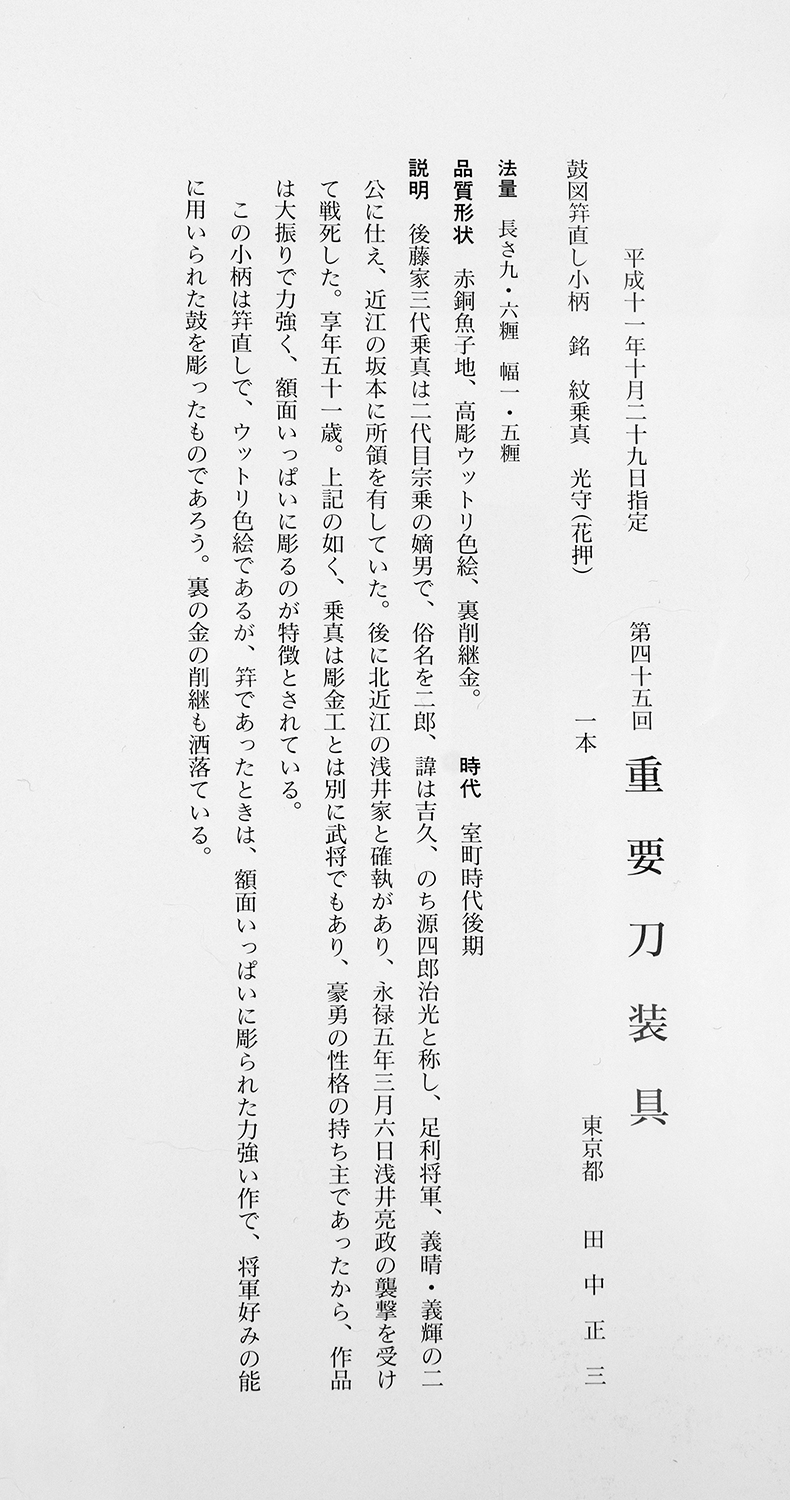 平成十一年十月二十九日指定　第四十五回　重要刀装具
鼓図笄直し小柄　銘　紋乗真　光守（花押）　一本　東京都　田中正三
法量　長さ九・六糎　幅一・五糎
品質形状　赤銅魚子地、高彫ウットリ色絵、裏削継金。　時代　室町時代後期
説明　後藤家三代乗真は二代目宗乗の嫡男で、俗名を二郎、諱は吉久、のち源四郎治光と称し、足利将軍、義晴・義輝の二
公に仕え、近江の坂本に所領を有していた。後に北近江の浅井家と確執があり、永禄五年三月六日浅井亮政の襲撃を受け
て戦死した。享年五十一歳。上記の如く、乗真は彫金工とは別に武将でもあり、豪勇の性格の持ち主であったから、作品
は大振りで力強く、額面いっぱいに彫るのが特徴とされている。
この小柄は笄直しで、ウットリ色絵であるが、笄であったときは、額面いっぱいに彫られた力強い作で、将軍好みの能
に用いられた鼓を彫ったものであろう。裏の金の削継も洒落ている。